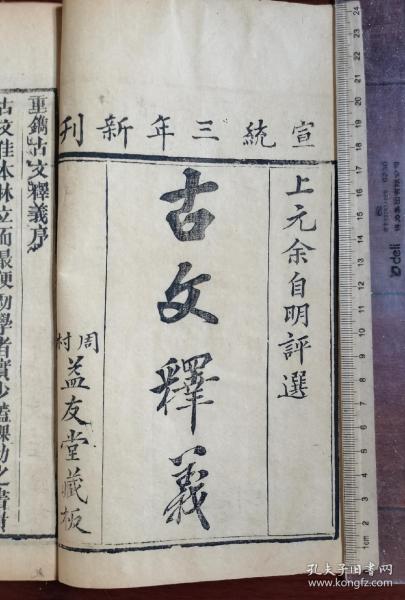 宣統三年新刊
上元余自明評選
古文釋義
周村
益友堂藏板
重鐫古文釋義序
古文佳本林立而最便初學者實少蓋課幼之書貴
deli
孔夫子旧书网